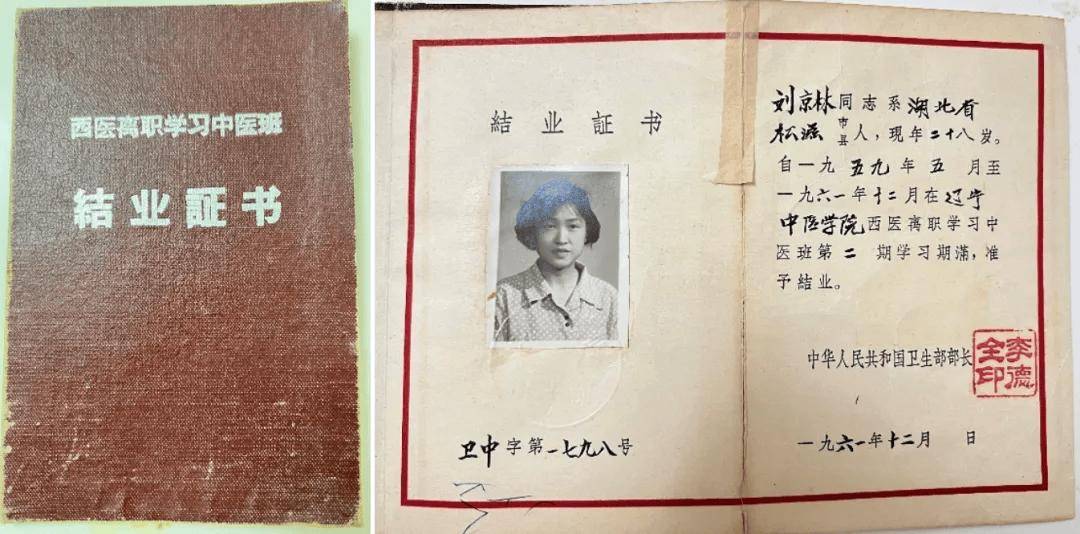 西医离职学习中医班
結业証书
結业証书
卫中字第一七九八号
刘京林同志系湖北省
松滋市县人，现年二十八岁。
自一九五九年五月至
一九六一年十二月在辽宁
中医学院西医离职学习中
医班第二期学习期满，准
予結业。
中华人民共和国卫生部部长
李德全印
一九六一年十二月 日